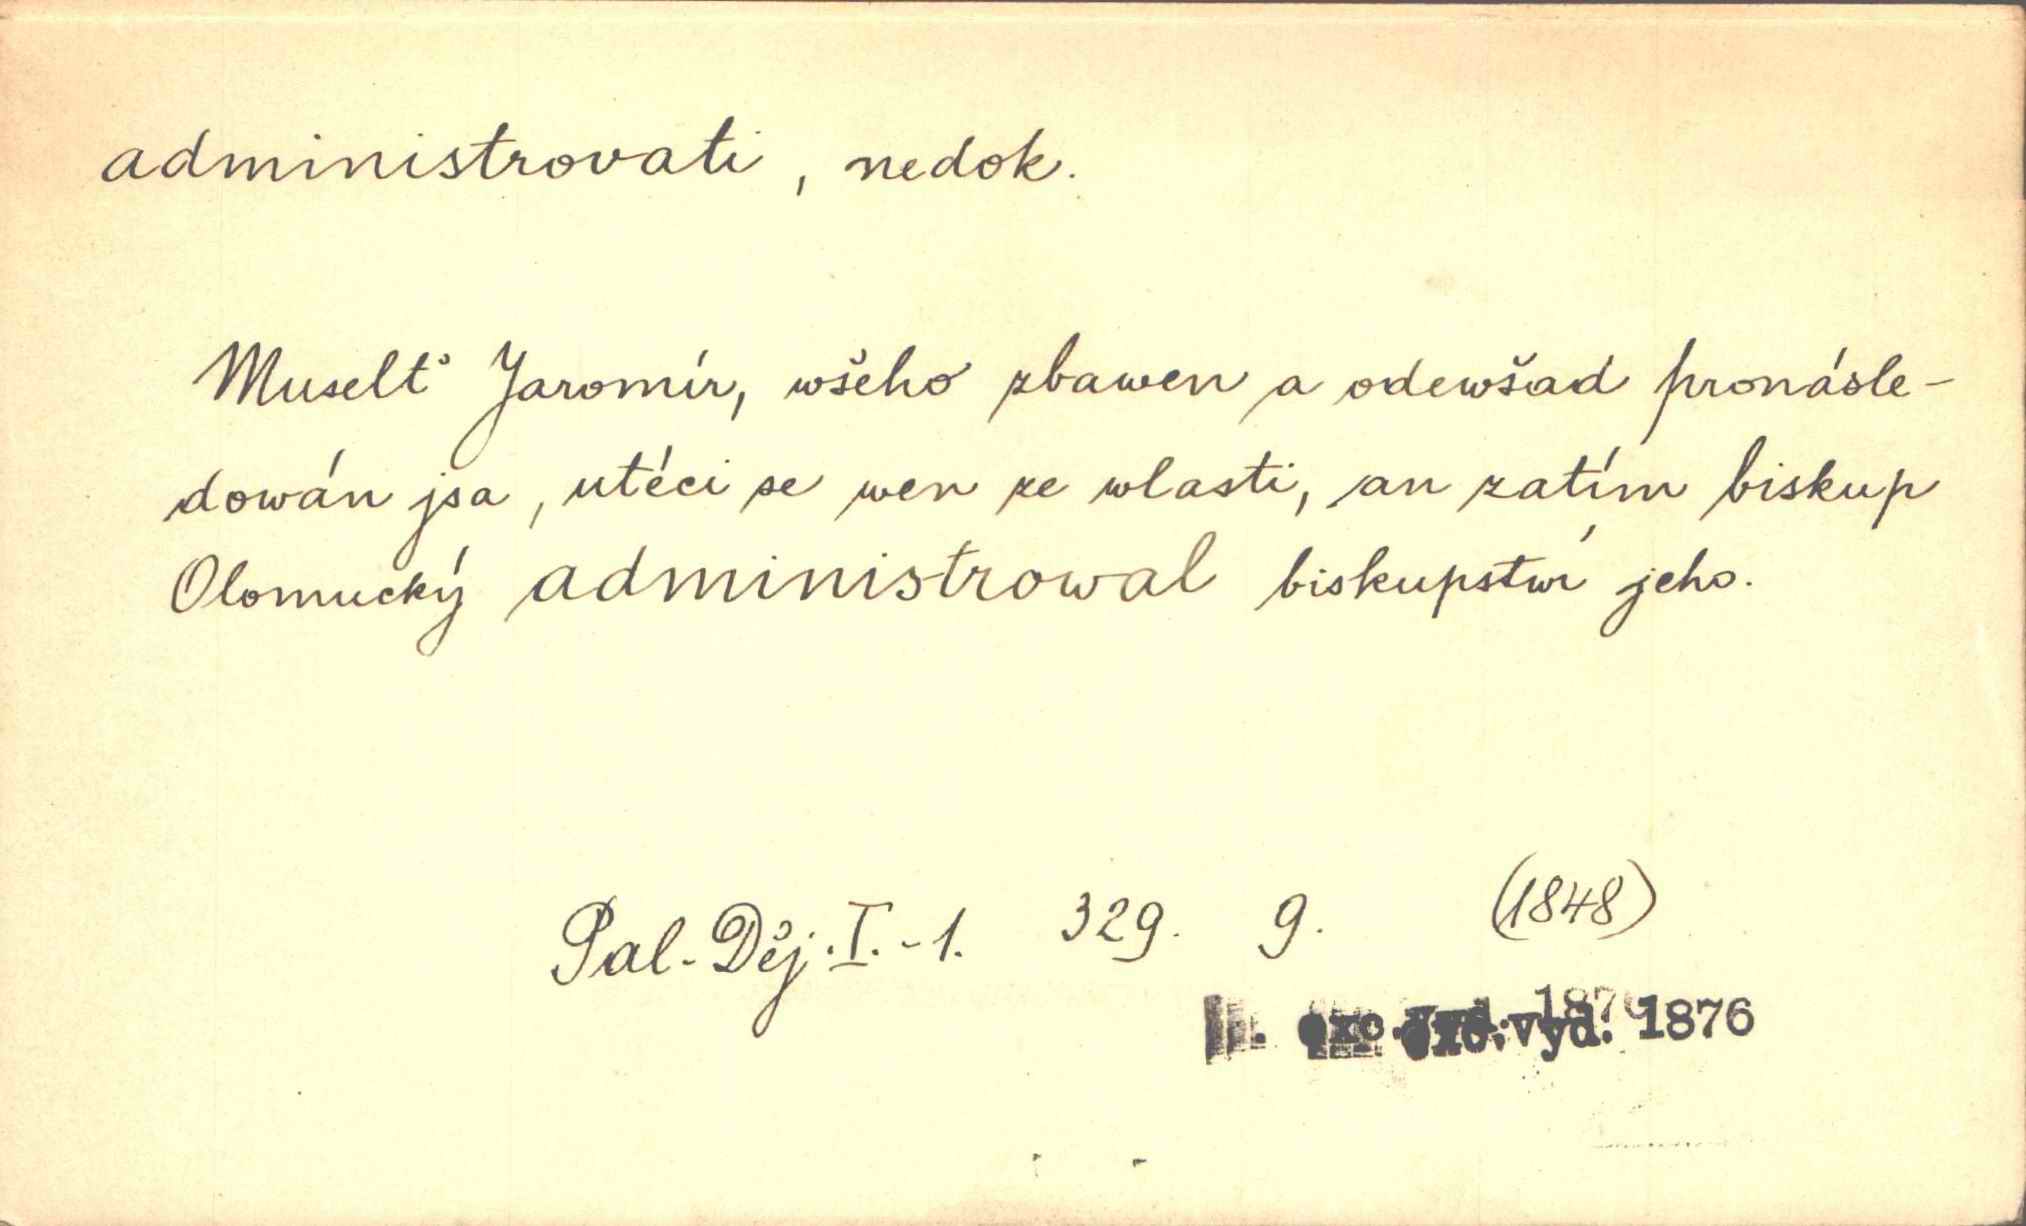 administrovati, nedok.
Muselť Jaromír, wšeho zbawen a odewšad pronásle-
dowán jsa, utéci se wen ze wlasti, an zatím biskup
Olomucký administrowal biskupstwí jeho.
Pal. Děj. I.-1. 329. 9. (1848)
exc. vyd. 1876